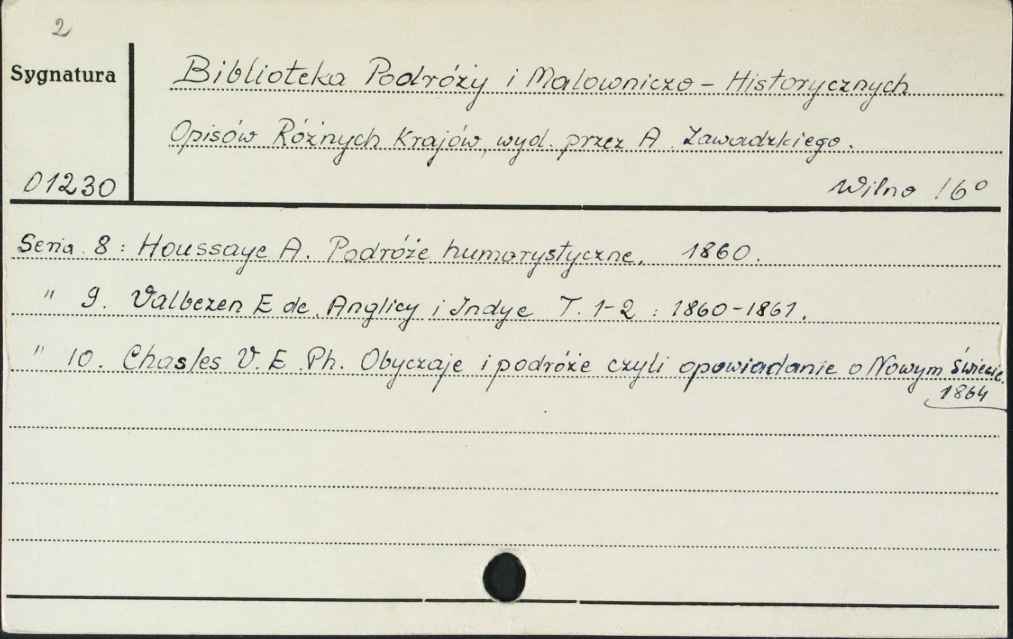 2
Sygnatura
Biblioteka Podróży i Malowniczo - Historycznych
Opisów Różnych Krajów, wyd. przez A. Zawadzkiego.
01230
Wilno 16°
Seria 8: Houssaye A. Podróże humorystyczne. 1860.
" 9. Valbezen E de. Anglicy i Indye T. 1-2 : 1860-1861.
" 10. Chasles V. E. Ph. Obyczaje i podróże czyli opowiadanie o Nowym Świecie.
1864